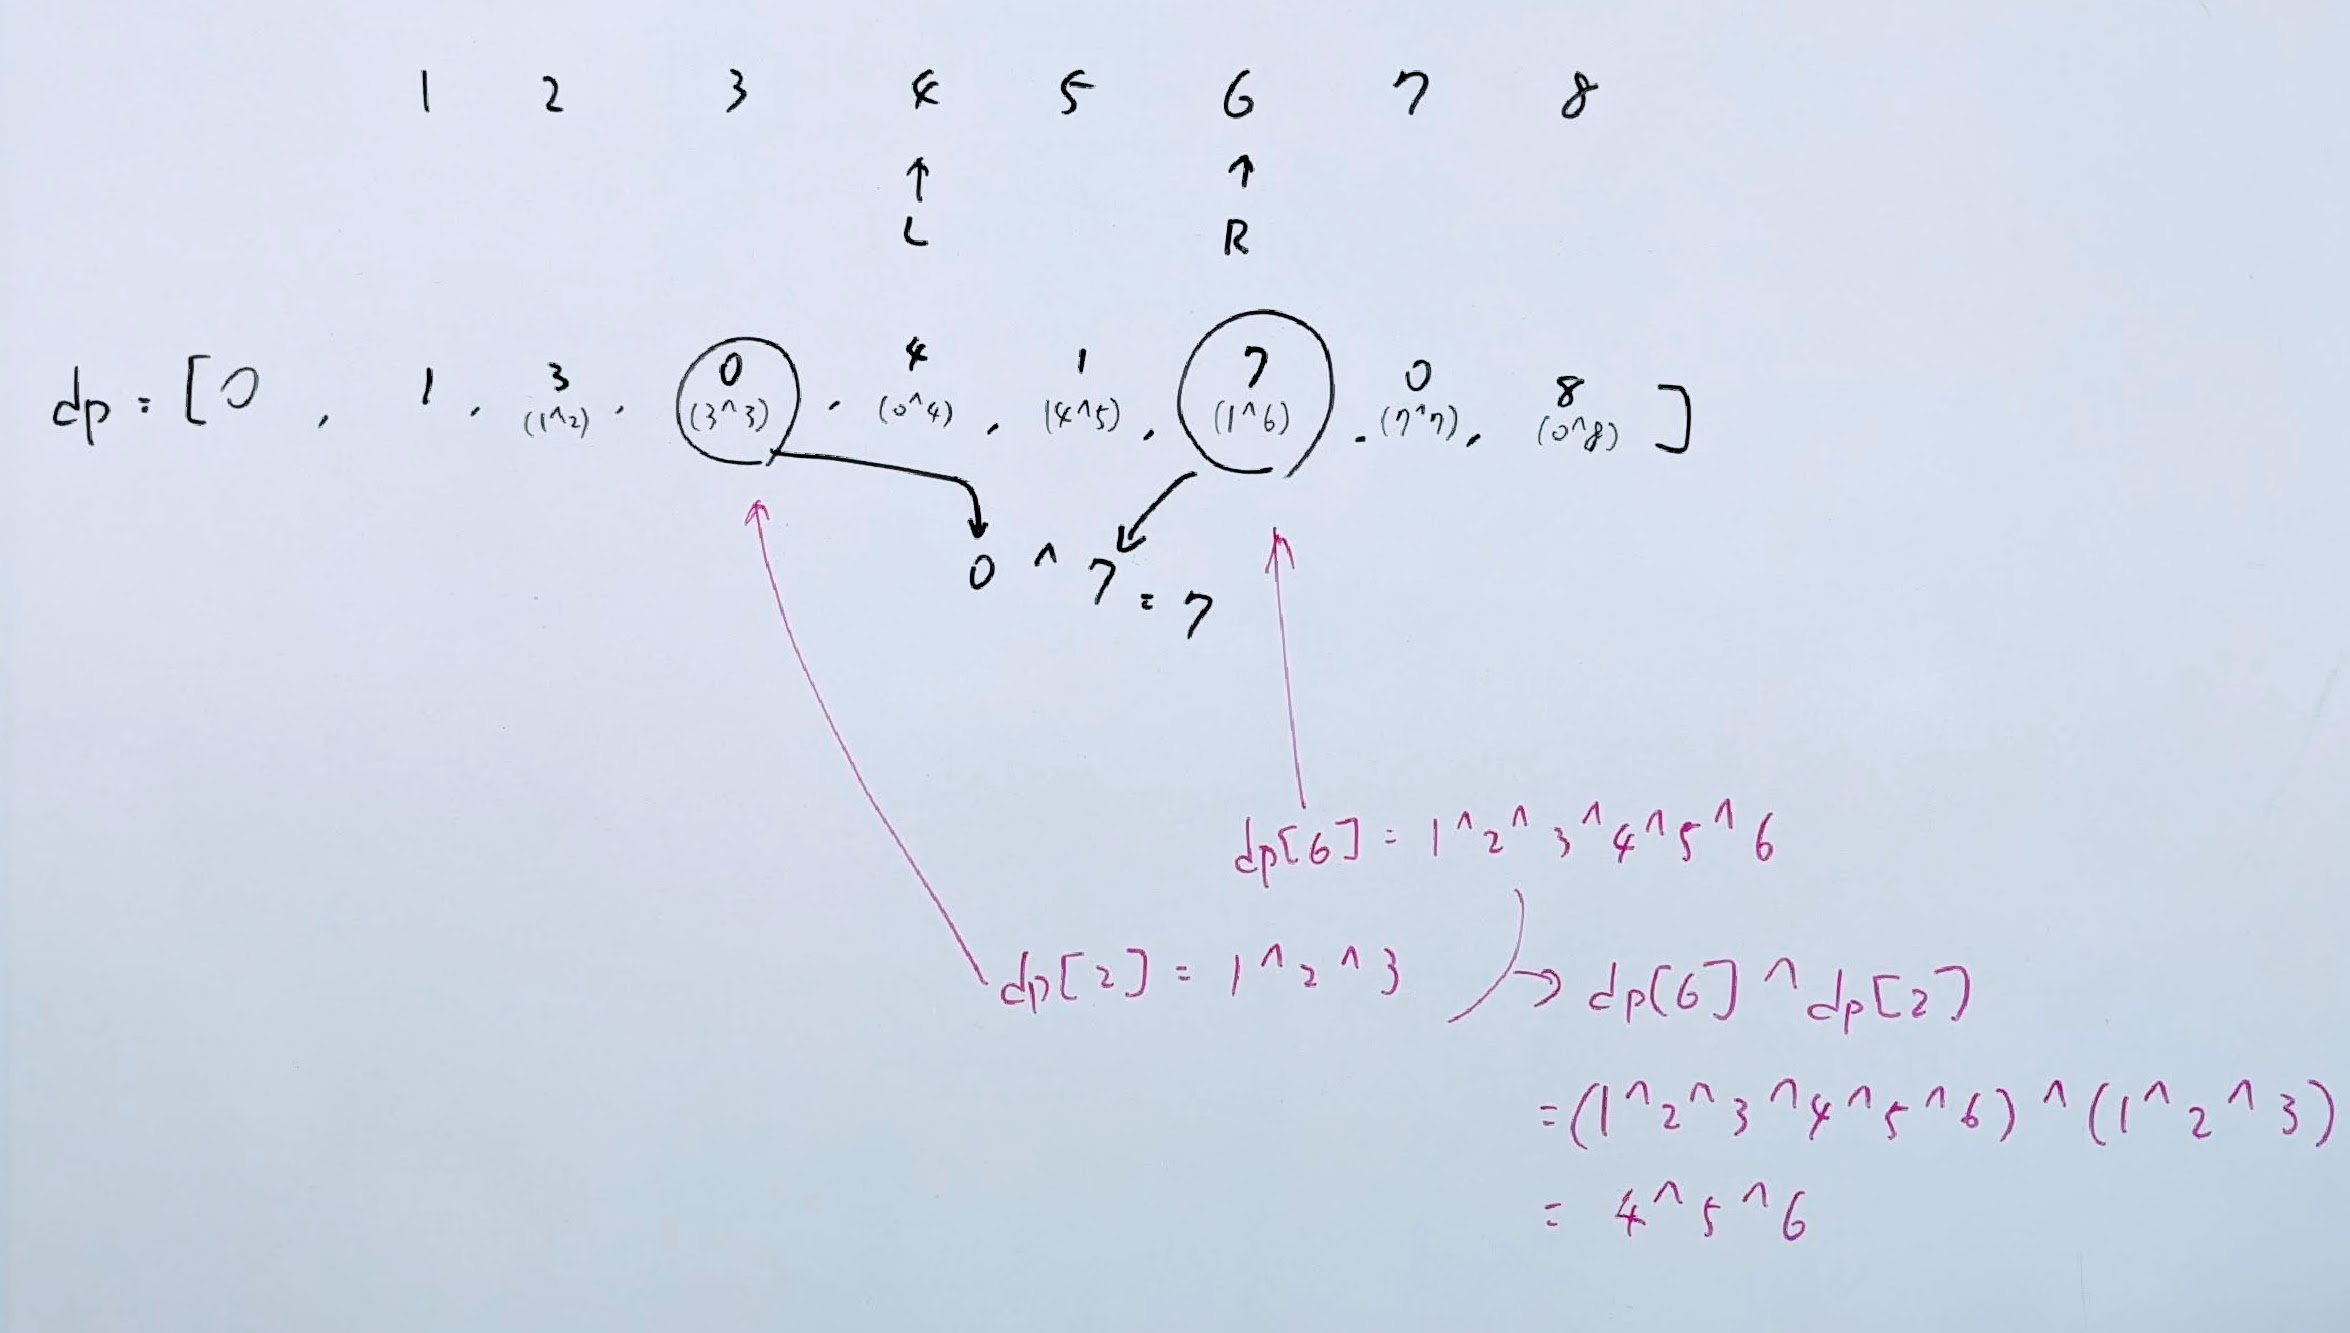 1 2 3 4 5 6 7 8
↑ ↑
L R
dp = [0, 1, 3, 0, 4, 1, 7, 0, 8]
(1^2) (3^3) (0^4) (4^5) (1^6) (7^7) (0^8)
0 ^ 7 = 7
dp[6] = 1^2^3^4^5^6
dp[2] = 1^2^3
→ dp[6]^dp[2]
=(1^2^3^4^5^6)^(1^2^3)
= 4^5^6